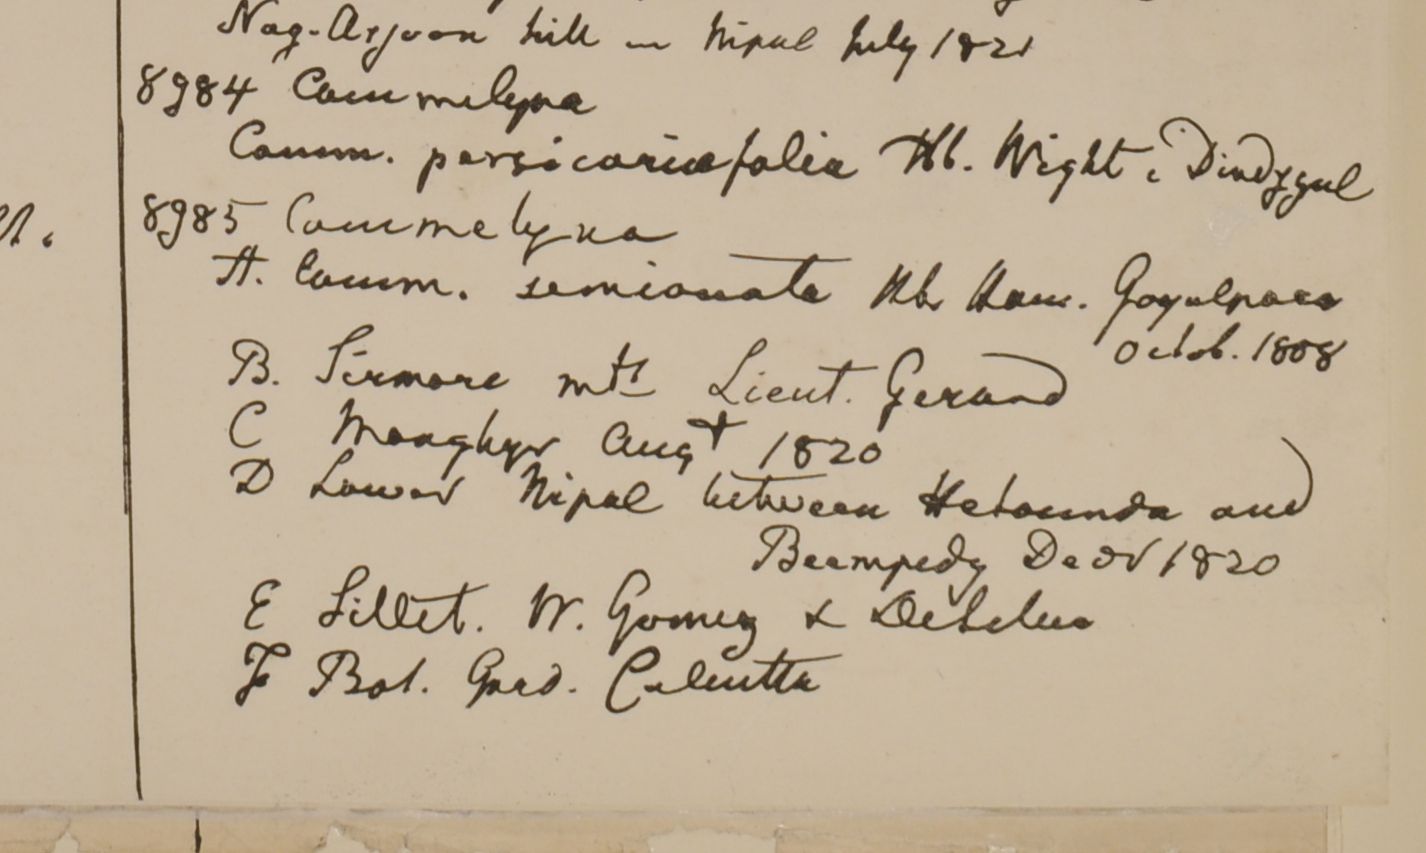 Nag-Arjoon hill in Nipal July 1821
8984 Commelyna
Comm. persicariaefolia Hb. Wight : Dindygul
8985 Commelyna
A. Comm. Hb Ham. Goyalpara
Octob. 1808
B. Sirmore mts Lieut. Gerard
C Monghyr Augt 1820
D Lower Nipal between Hetounda and
Beempedy Decr 1820
E Sillet. W. Gomez & DeSilva
F Bot. Gard. Calcutta